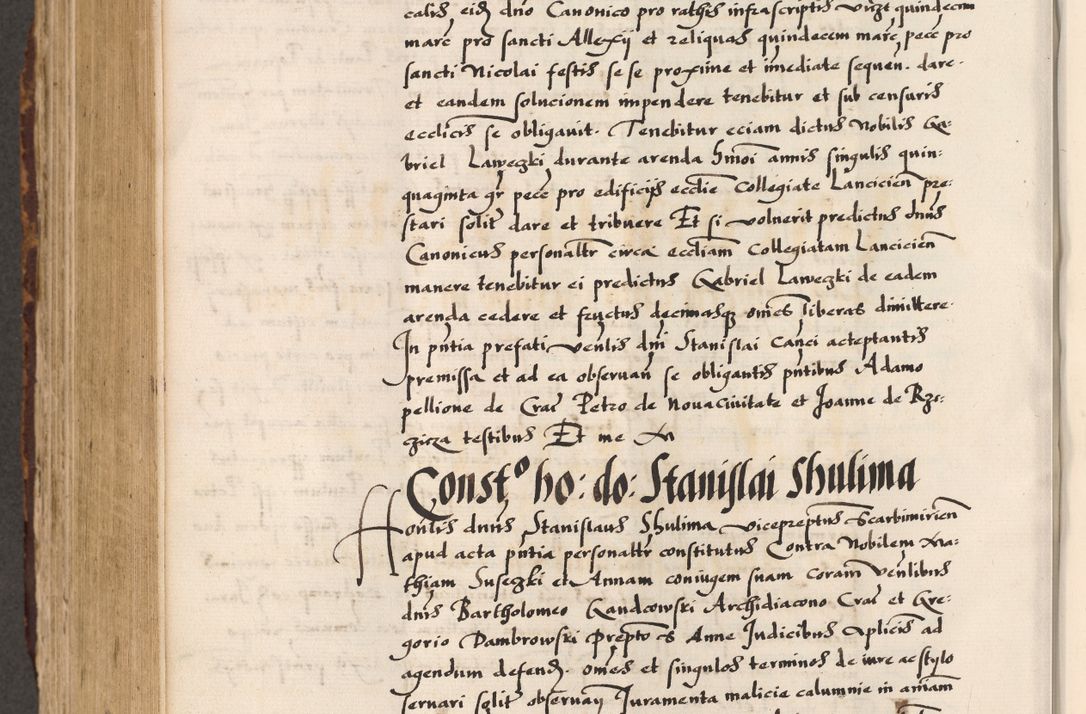 calis eidem dno Canonico pro rathis infrascriptis vizt quindecim
marc pro sancti Allexij et reliquas quindecem marc pecc pro
sancti Nicolai festis se se proxime et imediate sequen. dare.
et eandem solucionem impendere tenebitur et sub censuris
ecclicis se obligauit. Tenebitur eciam dictus Nobilis Ga-
briel Laweczki durante arenda hmoi annis singulis quin:
quaginta gr pecc pro edificijs ecclie Collegiate Lancicien pre:
stari solit dare et tribuere Et si voluerit predictus dnus
Canonicus personaltr circa eccliam Collegiatam Lancicien
manere tenebitur ei predictus Gabriel Laweczki de eadem
arenda cedere et fructus decimasq omes liberas dimittere.
In pntia prefati venlis dni Stanislai Canci acceptantis
premissa et ad ea observan se obligantis pntibus Adamo
pellione de Crac Petro de Novacivitate et Joanne de Rze:
zicza testibus Et me
Const⁰ ho: do: Stanislai Shulima
Honlis dnus Stanislaus Shulima vicepreptus Scarbimirien
apud acta pntia personaltr constitutus Contra Nobilem Ma-
thiam Suseczki et Annam coniugem suam coram venlibus
dnis Bartholomeo Gandcowski Archidiacono Crac et Gre-
gorio Dambrowski prepto S Anne Judicibus Aplicis ad
agendum defend. omes et singulos terminos de iure ac stylo
servari solit observan Juramenta malicie calumnie in aniam